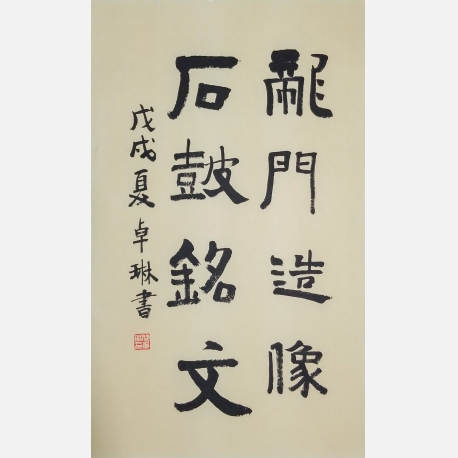 龍門造像
石鼓銘文
戊戌夏卓琳書